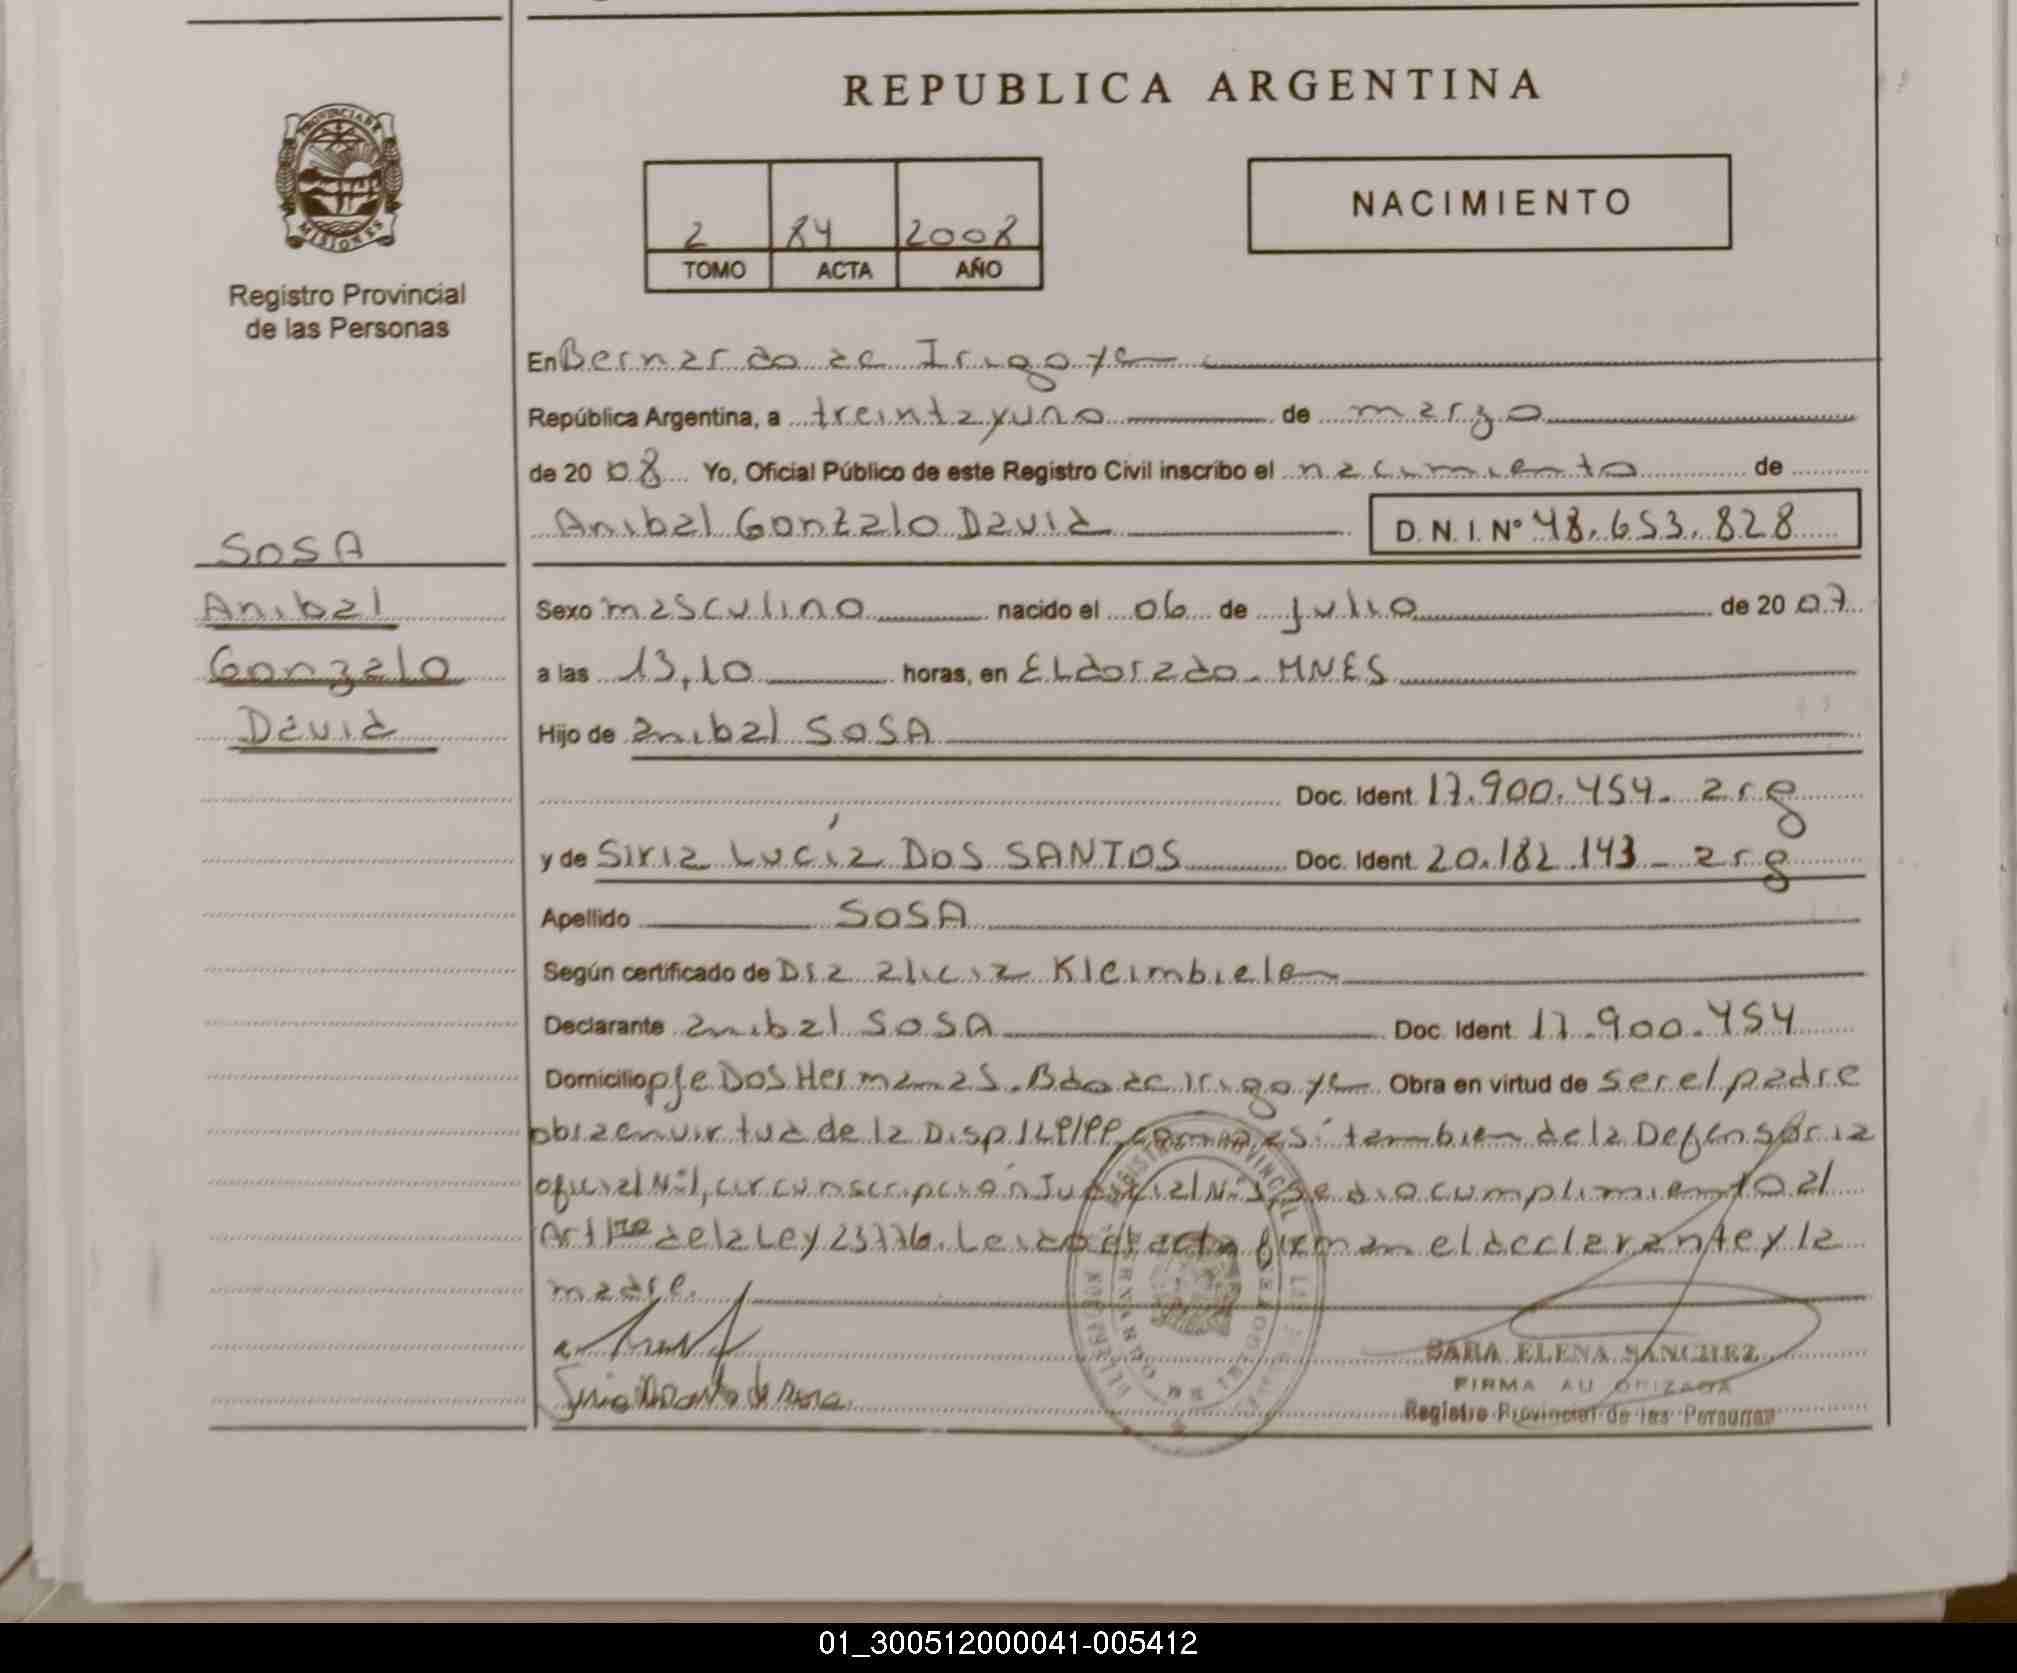 REPUBLICA ARGENTINA
PROVINCIA DE
MISIONES
Registro Provincial
de las Personas
2 84 2008
TOMO ACTA AÑO
NACIMIENTO
En Bernardo de Irigoyen
República Argentina, a treintayuno de marzo
de 20 08 Yo, Oficial Público de este Registro Civil inscribo el nacimiento de
Anibal Gonzalo David D.N.I. Nº 48.653.828
SOSA
Anibal
Gonzalo
David
Sexo masculino nacido el 06 de julio de 20 07
a las 13,10 horas, en ELdorado - MNES
Hijo de anibal SOSA
Doc. Ident. 17.900.454 - arg
y de Siria Lucía DOS SANTOS Doc. Ident. 20.182.143 - arg
Apellido SOSA
Según certificado de Dra alicia Kleimbielen
Declarante anibal SOSA Doc. Ident. 17.900.454
Domicilio pje Dos Hermanas. Bdo de irigoyen Obra en virtud de ser el padre
obra en virtud de la Disp como así tambien de la Defensoria
oficial Nº1, circunscripción Judicial Nº Se dio cumplimiento al
Art 1ro de la Ley 23776. Leido el acta firman el declarante y la
madre.
SARA ELENA SANCHEZ
FIRMA AUTORIZADA
Registro Provincial de las Personas
01_300512000041-005412